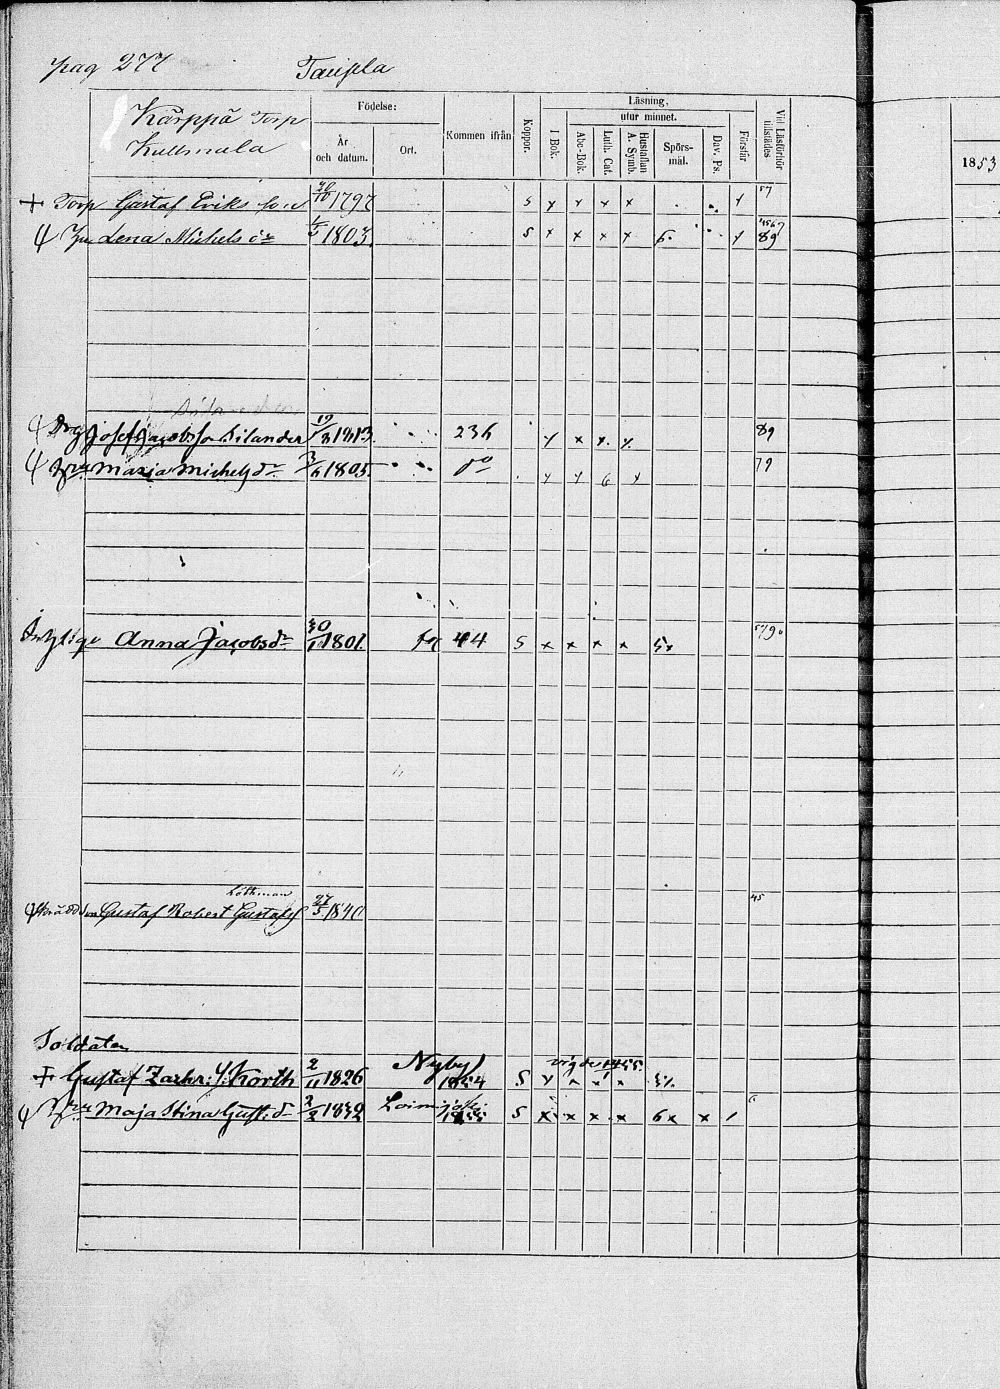 pag 277 Taipla
Kärppä Torp
Kullmala
Födelse:
År och datum.
Ort.
Kommen ifrån
Koppor.
Läsning,
utur minnet.
I Bok.
Abc-Bok.
Luth. Cat.
Hustaflan A. Symb.
Spörs-mål.
Dav. Ps.
Förstår
Vid Läsförhör tillstädes
1853
+ Torp Gustaf Eriks son 20/10 1797 S x x x x x 57
Hu Lena Michels dr 1/5 1803 S x x x x 6. x 89
Josef Jacobsson Silander 19/3 1813 236 x x x x 89
Hru Maria Michelsdr 3/6 1805 do x x 6 x 79
Inhyses Anna Jacobsdr 30/1 1801 44 S x x x x 5x
Löthman
Gustaf Robert Gustafss 27/5 1840 45
Soldaten
+ Gustaf Zachr: s. Korth 2/11 1826 Nyby 1854 S x x x x 5% vigde 1855
Hru Maja Stina Gust. dr 2/2 1832 Loimijoki 1855 S x x x x 6x x 1